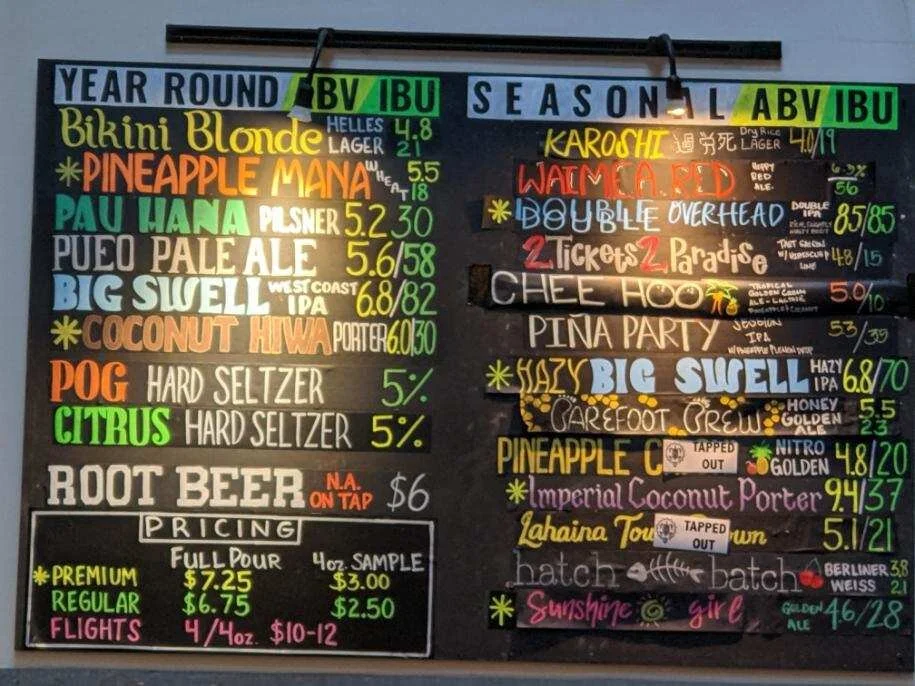 YEAR ROUND ABV IBU
Bikini Blonde HELLES LAGER 4.8 21
*PINEAPPLE MANA WHEAT 5.5 18
PAU HANA PILSNER 5.2 30
PUEO PALE ALE 5.6/58
BIG SWELL WEST COAST IPA 6.8/82
*COCONUT HIWA PORTER 6.0/30
POG HARD SELTZER 5%
CITRUS HARD SELTZER 5%
ROOT BEER N.A. ON TAP $6
PRICING
FULL POUR 4oz. SAMPLE
*PREMIUM $7.25 $3.00
REGULAR $6.75 $2.50
FLIGHTS 4/4oz. $10-12
SEASONAL ABV IBU
KAROSHI 過労死 Dry Rice LAGER 4.0/19
WAIMEA RED HOPPY RED ALE 56
*DOUBLE OVERHEAD DOUBLE IPA 85/85
2 Tickets 2 Paradise TART SAISON W/ HIBISCUS & LIME 4.8/15
CHEE HOO TROPICAL GOLDEN CREAM ALE 5.0/10
PIÑA PARTY SESSION IPA 5.3/35
*HAZY BIG SWELL HAZY IPA 6.8/70
BAREFOOT BREW HONEY GOLDEN ALE 5.5 23
PINEAPPLE C TAPPED OUT NITRO GOLDEN 4.8/20
*Imperial Coconut Porter 9.4/37
Lahaina Tow TAPPED OUT own 5.1/21
hatch batch BERLINER WEISS 3.8 2.1
*Sunshine girl GOLDEN ALE 4.6/28